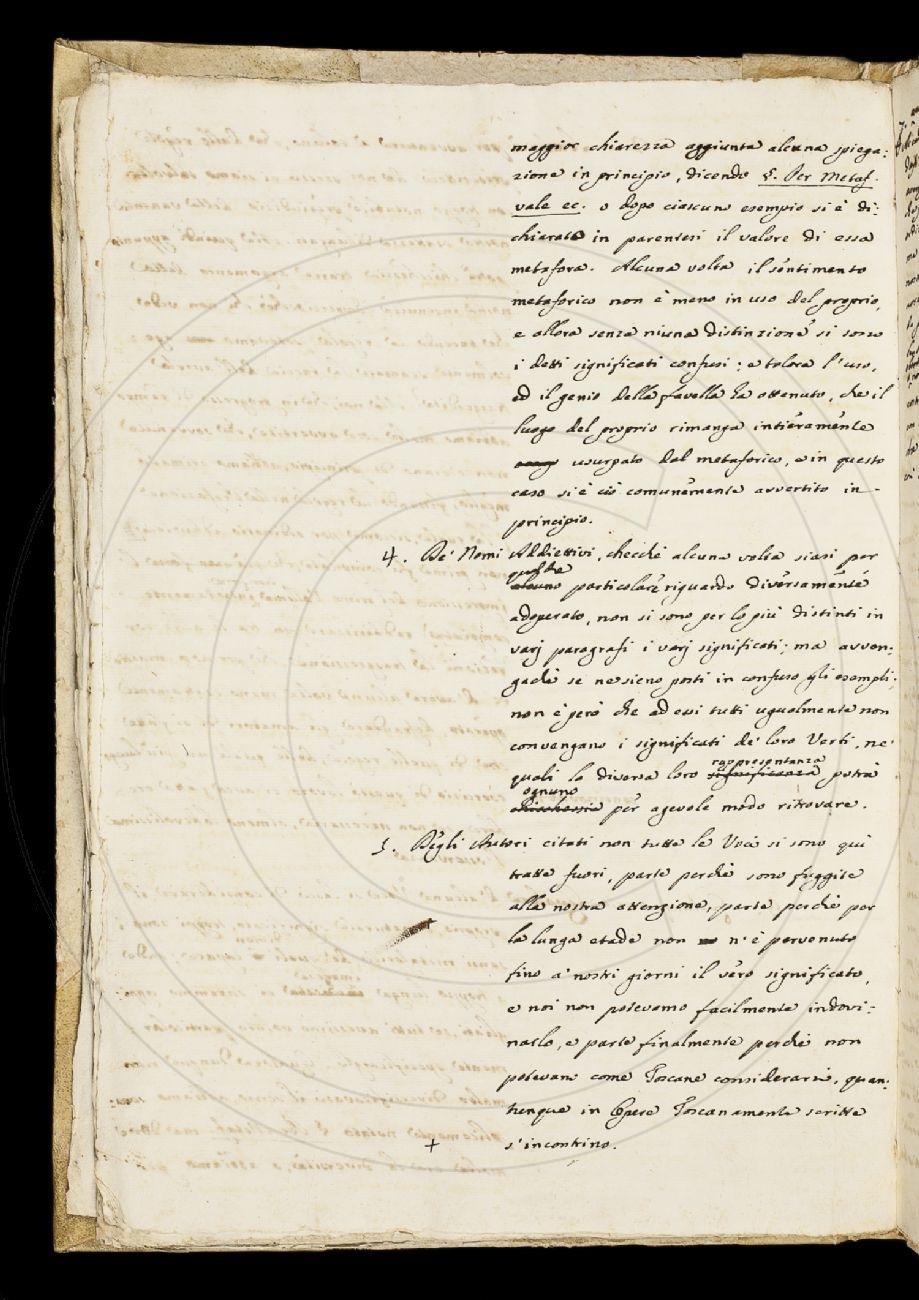 maggior chiarezza aggiunta alcuna spiega:
zione in principio, dicendo §. Per Metaf.
vale ec. o dopo ciascuno esempio si è di:
chiarato in parentesi il valore di essa
metafora. Alcuna volta il sentimento
metaforico non è meno in uso del proprio,
e allora senza niuna distinzione si sono
i detti significati confusi: e talora l'uso,
ed il genio della favella ha ottenuto, che il
luogo del proprio rimanga intieramente
usurpato dal metaforico, e in questo
caso si è ciò comunemente avvertito in
principio.
4. De' Nomi Addiettivi, checchè alcuna volta siasi per
qualche
alcuno particolare riguardo diversamente
adoperato, non si sono per lo più distinti in
varj paragrafi i varj significati; ma avven:
gachè se ne sieno posti in confuso gli esempli,
non è però che ad essi tutti ugualmente non
convengano i significati de' loro Verbi, ne'
rappresentanza
quali la diversa loro significanza potrà
ognuno
chicchessia per agevole modo ritrovare.
5. Degli Autori citati non tutte le Voci si sono quì
tratte fuori, parte perchè sono fuggite
alla nostra attenzione, parte perchè per
la lunga etade non n'è pervenuto
fino a' nostri giorni il vero significato,
e noi non potevamo facilmente indovi:
narlo, e parte finalmente perchè non
potevano come Toscane considerarsi, quan:
tunque in Opere Toscanamente scritte
s'incontrino.
+